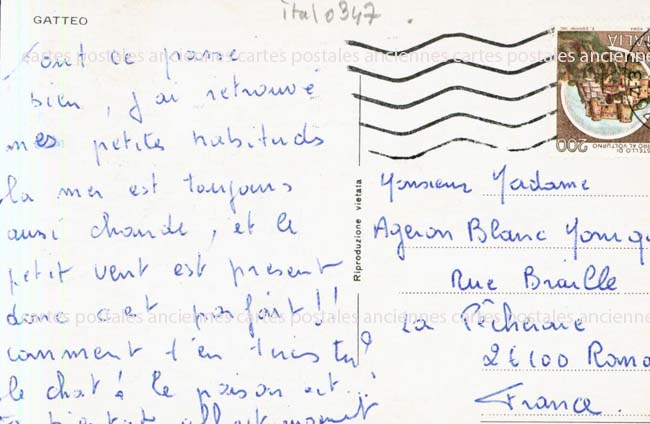 ital0347.
GATTEO
Tout ce passe
bien, j'ai retrouvé
mes petites habituds
la mer est toujours
aussi chaude, et le
petit vent est present
donc c'est parfait!!
comment t'en tires tu?
le chat! le poison est...!
Riproduzione vietata
200
ITALIA
CASTELLO DI
CERRO AL VOLTURNO
Monsieur Madame
Ageron Blanc
Rue Braille
La Pêcherie
26100 Roma
France.
cartes postales anciennes cartes postales anciennes cartes postales anciennes
cartes postales anciennes cartes postales anciennes cartes postales anciennes